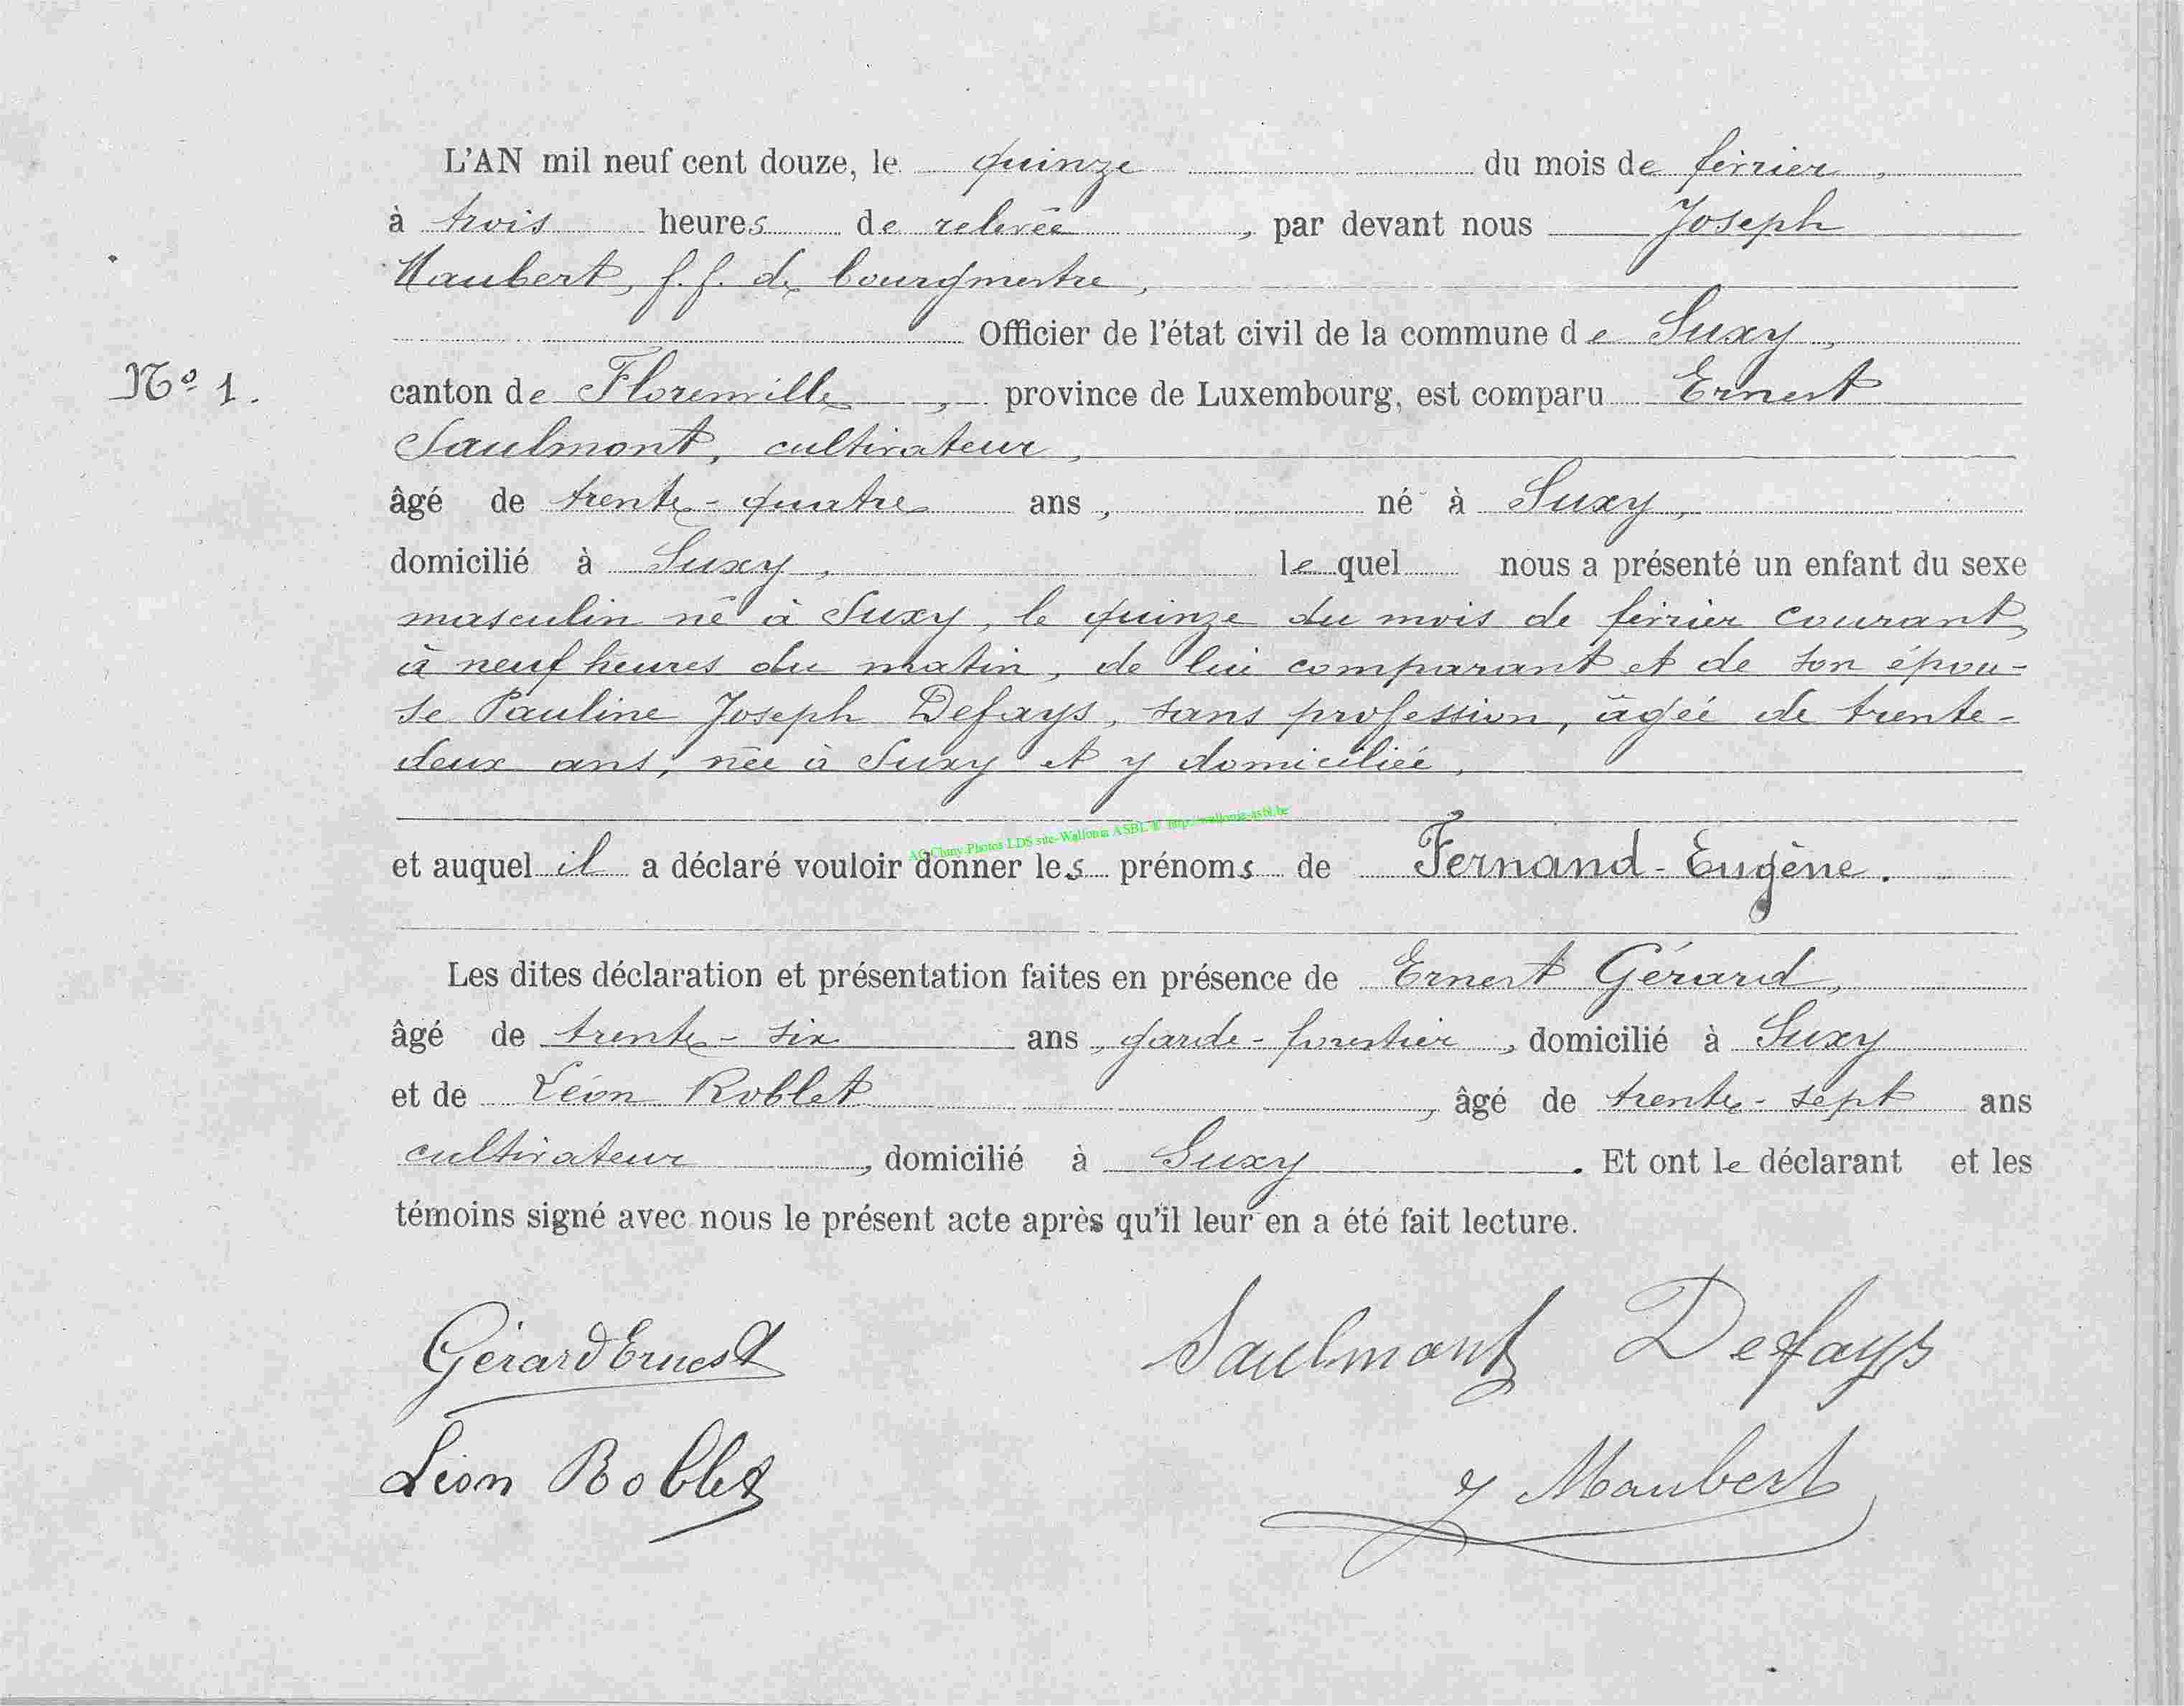 L'AN mil neuf cent douze, le quinze du mois de février,
à trois heures de relevée, par devant nous Joseph
Maubert, f.f. de bourgmestre,
Officier de l'état civil de la commune de Suxy,
N° 1.
canton de Florenville, province de Luxembourg, est comparu Ernest
Saulmont, cultivateur,
âgé de trente-quatre ans, né à Suxy,
domicilié à Suxy, lequel nous a présenté un enfant du sexe
masculin né à Suxy, le quinze du mois de février courant,
à neuf heures du matin, de lui comparant et de son épou-
se Pauline Joseph Defays, sans profession, âgée de trente-
deux ans, née à Suxy et y domiciliée,
AG Cluny Photos LDS site-Wallonia ASBL © http://wallonia-asbl.be
et auquel il a déclaré vouloir donner les prénoms de Fernand-Eugène.
Les dites déclaration et présentation faites en présence de Ernest Gérard,
âgé de trente-six ans, garde-forestier, domicilié à Suxy
et de Léon Roblet, âgé de trente-sept ans
cultivateur, domicilié à Suxy. Et ont le déclarant et les
témoins signé avec nous le présent acte après qu'il leur en a été fait lecture.
Gérard Ernest Saulmont Defays
Léon Roblet J Maubert